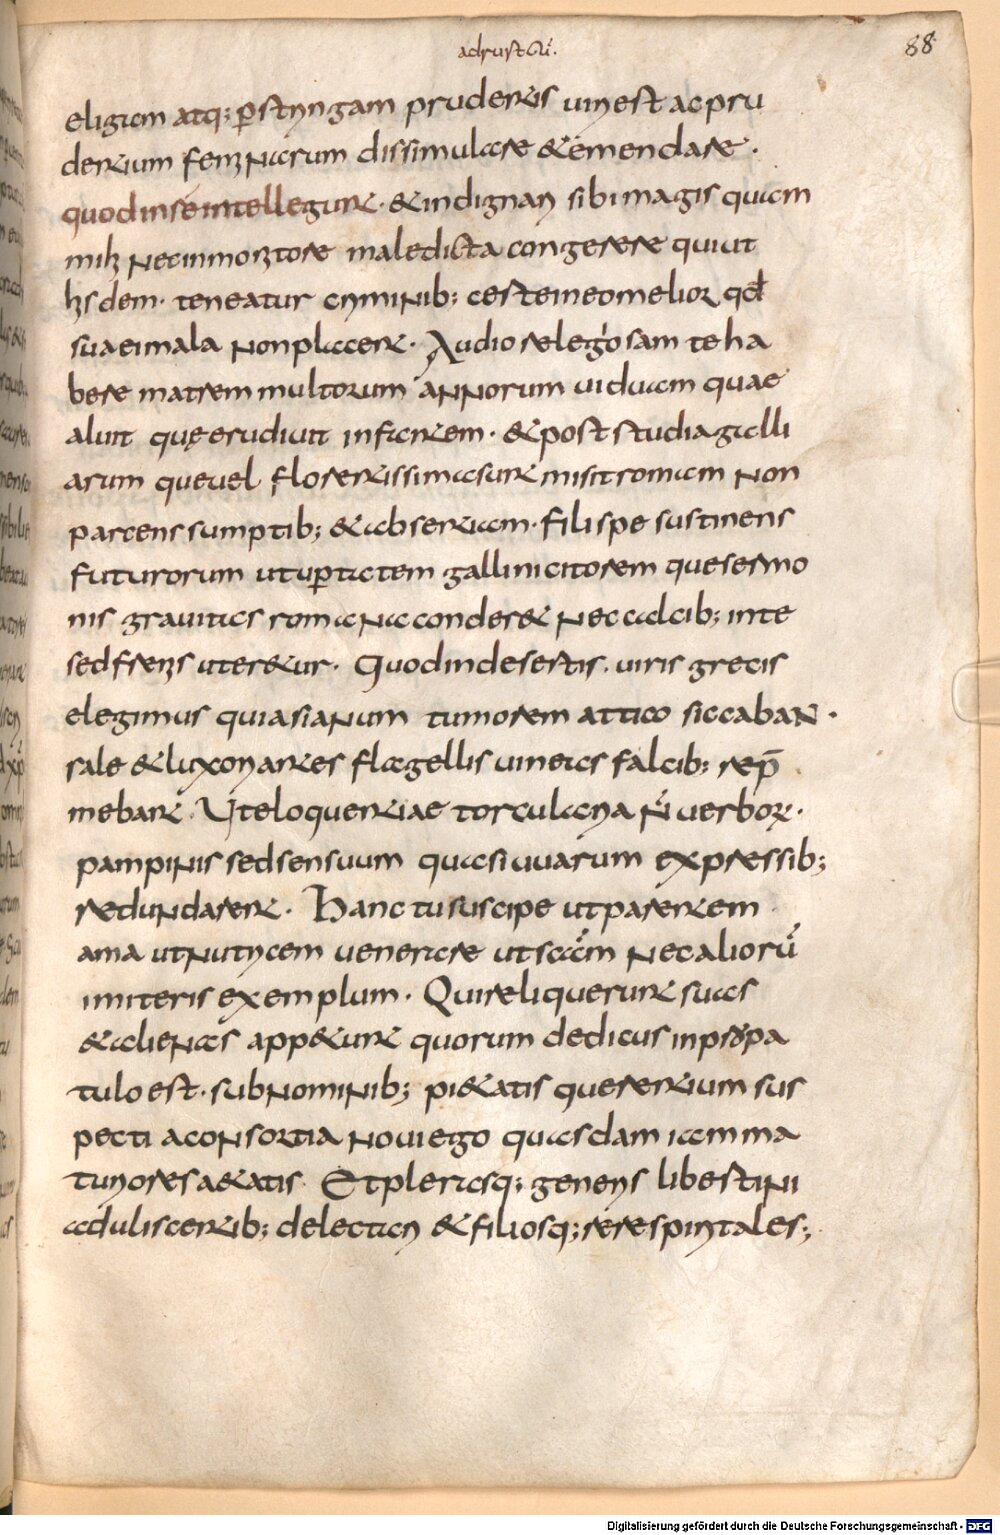 ad rusticū.
88
eligam atq; ꝑstringam prudentis uiri est ac pru
dentium sententiarum dissimulare & emendare.
quod in se intellegunt. & indignari sibi magis quam
mihi nec in monitore maledicta congerere qui ut
hisdem. teneatur criminib; certe in eo melior qđ
sua ei mala non placent. Audio relegiosam te ha
bere matrem multorum annorum uiduam quae
aluit quę erudiuit infantem. & post studia galli
arum que uel florentissima sunt misit romam non
parcens sumptib; & absentiam. fili spe sustinens
futurorum ut uꝑtatem gallini citorem que sermo
nis grauitas romana conder& nec calcib; in te
sed frenis uter&ur. Quod in desertis. uiris grecis
elegimus qui asianum tumorem attico siccaban.
sale & luxoriantes flagellis uineas falcib; rep̄
mebant. Ut eloquentiae torcularia n̄ uerboꝝ.
pampinis sed sensuum quasi uuarum expressib;
redundarent. Hanc tu suscipe ut parentem
ama ut nutricem uenerare ut scām nec aliorū
imiteris exemplum. Qui reliquerunt suas
& alienas app&unt quorum dedicus in propa
tulo est. sub nominib; pi&atis querentium sus
pecti a consortia noui ego quasdam iam ma
turiores a&atis. Et plerasq; generis libertini
aduliscentib; delectari & filiosq; rere spiritales;
Digitalisierung gefördert durch die Deutsche Forschungsgemeinschaft - DFG